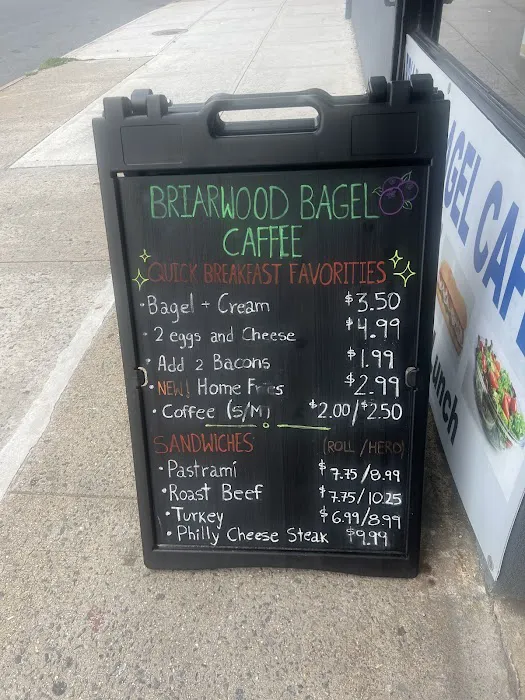 BRIARWOOD BAGEL
CAFFEE
QUICK BREAKFAST FAVORITIES
• Bagel + Cream $3.50
• 2 eggs and Cheese $4.99
• Add 2 Bacons $1.99
• NEW! Home Fries $2.99
• Coffee (S/M) $2.00/$2.50
SANDWICHES (ROLL / HERO)
• Pastrami $7.75/8.99
• Roast Beef $7.75/10.25
• Turkey $6.99/8.99
• Philly Cheese Steak $9.99
AGEL CAF
unch